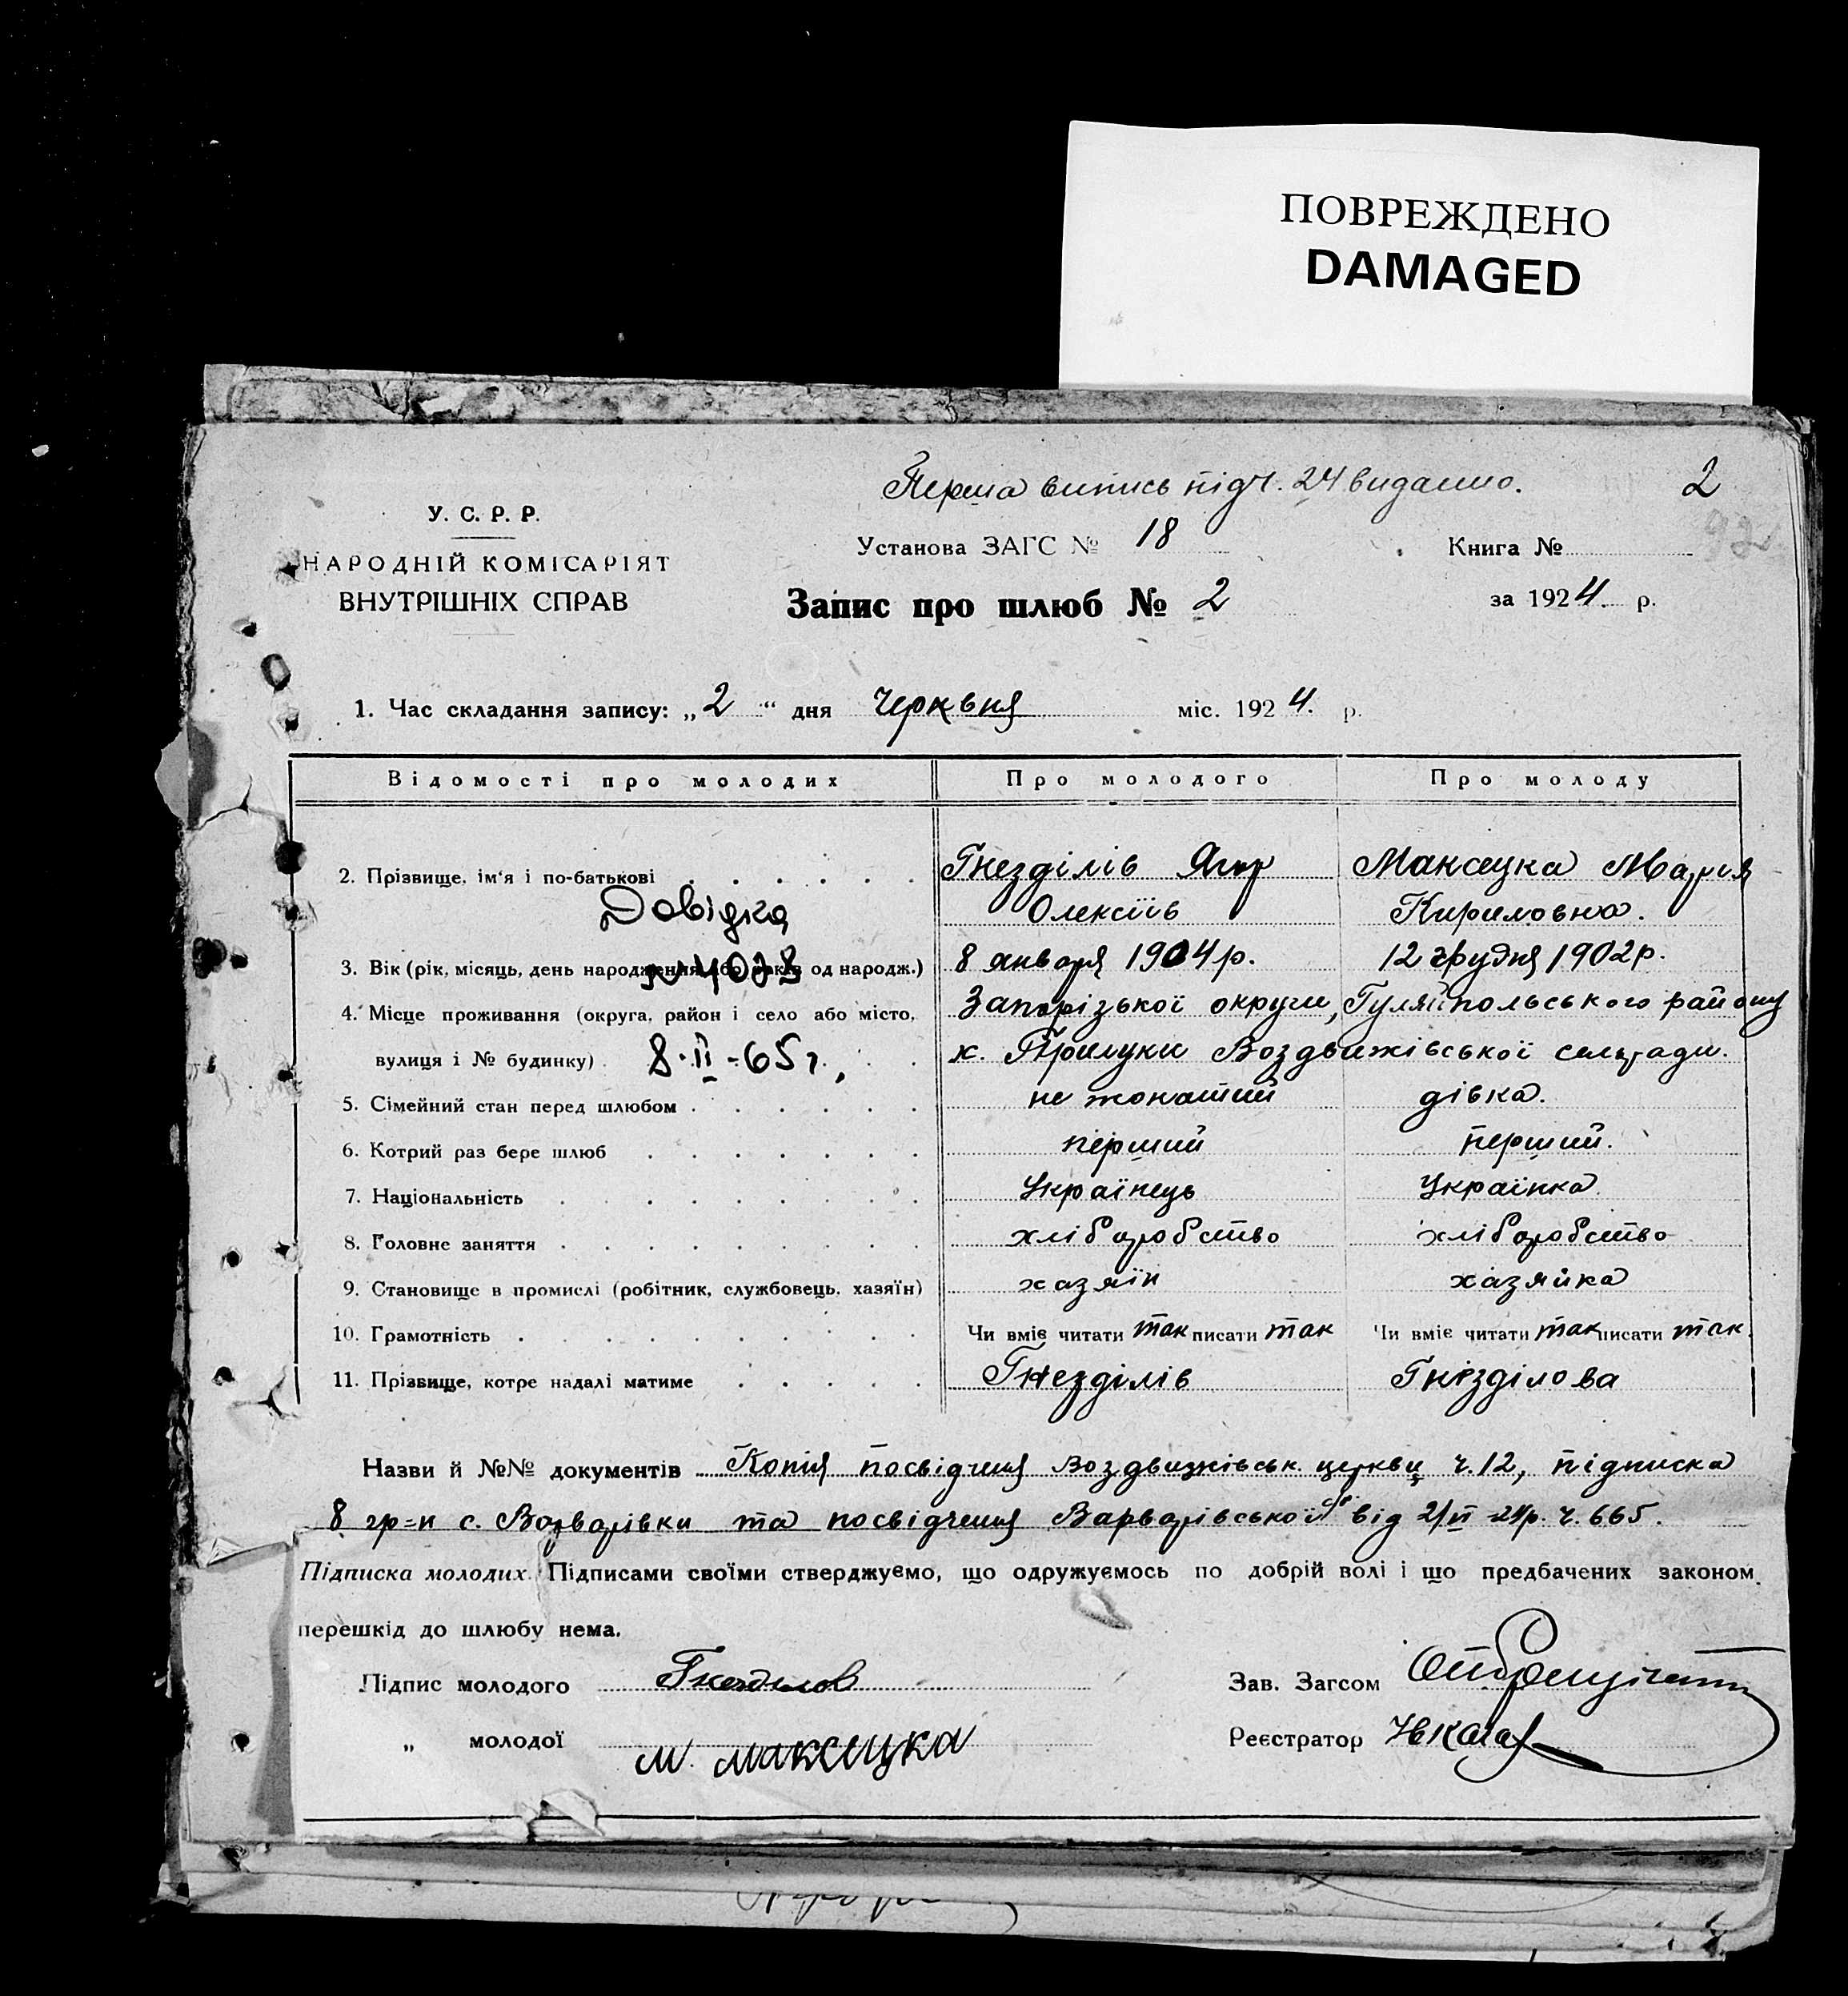 ПОВРЕЖДЕНО
DAMAGED
Перша випись підч. 24 видана.
2
У. С. Р. Р.
НАРОДНІЙ КОМІСАРІЯТ
ВНУТРІШНІХ СПРАВ
Установа ЗАГС № 18
Книга №
92
Запис про шлюб № 2
за 1924. р.
1. Час складання запису: „2“ дня червня міс. 1924. р.
Відомості про молодих Про молодого Про молоду
2. Прізвище, ім'я і по-батькові Гнезділів Ягор Максецка Мария
Довідка Олексіїв Кириловна.
3. Вік (рік, місяць, день народження або років од народж.) 8 января 1904р. 12 грудня 1902р.
4. Місце проживання (округа, район і село або місто, Запорізької округи, Гуляйпольського району
вулиця і № будинку) 8·II-65г., х. Прилуки Воздвижівської сельради.
5. Сімейний стан перед шлюбом не жонатий дівка.
6. Котрий раз бере шлюб перший перший.
7. Національність Українець Українка.
8. Головне заняття хліборобство хліборобство
9. Становище в промислі (робітник, службовець, хазяїн) хазяїн хазяйка
10. Грамотність Чи вміє читати так писати так Чи вміє читати так писати так.
11. Прізвище, котре надалі матиме Гнезділів Гнезділова
Назви й №№ документів Копія посвідчення Воздвижівськ. церкви ч. 12, підписка
8 гр-н с. Варварівки та посвідчення Варварівської від 21/VI-24р. ч. 665.
Підписка молодих. Підписами своїми стверджуємо, що одружуємось по добрій волі і що предбачених законом
перешкід до шлюбу нема.
Підпис молодого Гнездилов Зав. Загсом
„ молодої М. Максецка Реєстратор